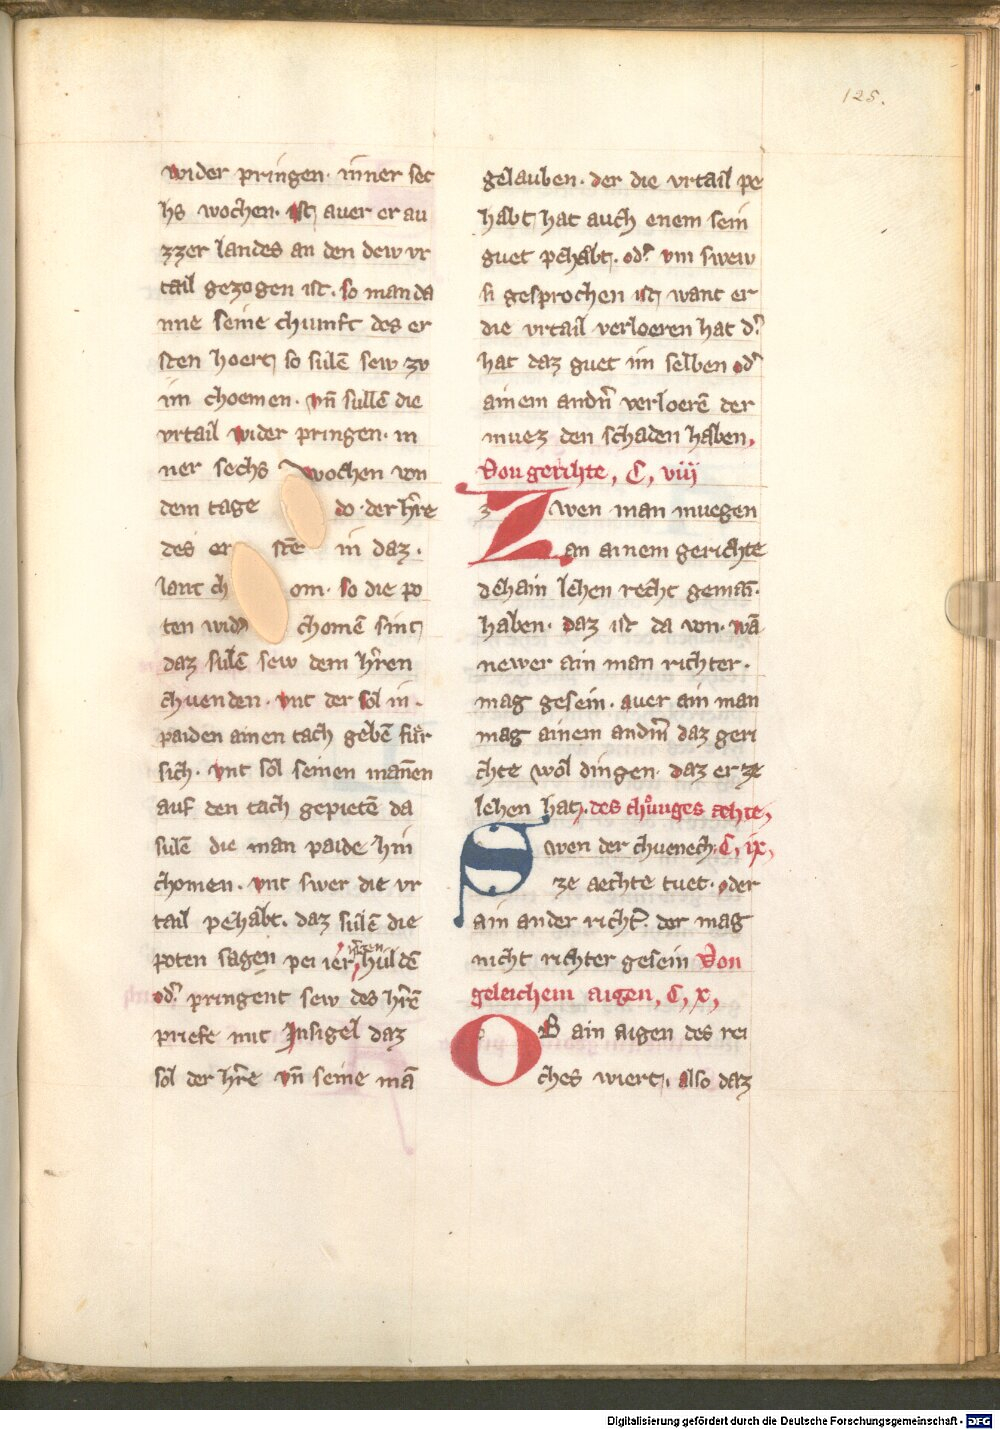 125.
wider pringen · inner sec
hs wochen · ist auer er au
zzer landes an den dew vr
tail gezogen ist · so man da
nne seine chunft des er
sten hoert so sulē sew zv
im choemen · vn̄ sullē die
vrtail wider pringen · in
ner sechs wochen von
dem tage do · der h̄re
des er stē in daz ·
lant ch om · so die po
ten wid᷑ chomē sint
daz sulē sew dem h̄ren
chuenden · vnt der sol in ·
paiden ainen tach gebē fur
sich · vnt sol seinen mañen
auf den tach gepietē da
sulē die man paide hin
chomen · vnt swer die vr
tail pehabt · daz sulē die
poten sagen pei ier huldē
od᷑ pringent sew des h̄rē
priefe mit Insigel daz
sol der h̄re vn̄ seine mā
gelauben · der die vrtail pe
habt hat auch enem sein
guet pehabt · od᷑ vm swew
si gesprochen ist want er
die vrtail verloeren hat d᷑
hat daz guet im selben od᷑
ainem andn̄ verloerē der
muez den schaden haben,
Von gerihte, C, viii
Zwen man muegen
an ainem gerichte
dehain lehen recht gemain̄ ·
haben · daz ist da von · wā
newer ain man richter ·
mag gesein · auer ain man
mag ainem andm̄ daz geri
chte wol dingen · daz er ze
lehen hat · des chůnges aehte,
Swen der chuenech · C, ix,
ze aechte tuet · oder
ain ander richt᷑ · der mag
nicht richter gesein Von
geleichem aigen, C, x,
OB ain aigen des rei
ches wiert · also daz
Digitalisierung gefördert durch die Deutsche Forschungsgemeinschaft - DFG